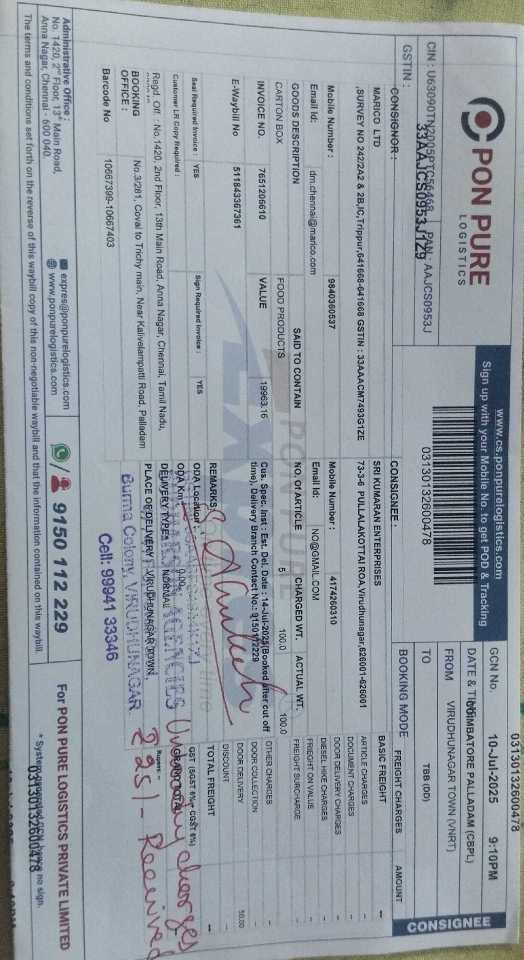 PON PURE
LOGISTICS
CIN : U63090TN2005PTC56468 PAN : AAJCS0953J
GSTIN : 33AAJCS0953J1Z9
www.cs.ponpurelogistics.com
Sign up with your Mobile No. to get POD & Tracking
03130132600478
03130132600478
GCN No.
DATE & TIME
10-Jul-2025 9:10PM
FROM
COIMBATORE PALLADAM (CBPL)
TO
VIRUDHUNAGAR TOWN (VNRT)
BOOKING MODE
TBB (DD)
CONSIGNEE
CONSIGNOR :
MARICO LTD
,SURVEY NO 242/2A2 & 2B,IC,Trippur,641668-641668 GSTIN : 33AAACM7493G1ZE
Mobile Number : 9840360537
Email Id: dm.chennai@marico.com
CONSIGNEE :
SRI KUMARAN ENTERPRISES
73-3-6 PULLALAKOTTAI ROA,Virudhunagar,626001-626001
Mobile Number : 4174260310
Email Id: NO@GMAIL.COM
GOODS DESCRIPTION
SAID TO CONTAIN
NO. OF ARTICLE
CHARGED WT.
ACTUAL WT.
CARTON BOX
FOOD PRODUCTS
5
100.0
100.0
INVOICE NO. 7651206610
VALUE 19963.16
E-Waybill No 511843367361
Cus. Spec. Inst : Est. Del. Date : 14-Jul-2025(Booked after cut off
time), Delivery Branch Contact No.: 9150112229
Seal Required Invoice : YES
Sign Required Invoice : YES
Customer LR Copy Required :
REMARKS
ODA Location :
ODA Km : 0.00
DELIVERY TYPES : NORMAL
PLACE OF DELIVERY : VIRUDHUNAGAR TOWN,
Regd. Off. : No.1420, 2nd Floor, 13th Main Road, Anna Nagar, Chennai, Tamil Nadu,
BOOKING OFFICE : No.3/281, Coval to Trichy main, Near Kalivelampatti Road, Palladam
Barcode No 10667399-10667403
AGENCIES
Burma Colony, VIRUDHUNAGAR
Cell: 99941 33346
FREIGHT CHARGES
AMOUNT
BASIC FREIGHT --
ARTICLE CHARGES -
DOCUMENT CHARGES -
DOOR DELIVERY CHARGES -
DIESEL HIKE CHARGES -
FREIGHT ON VALUE -
FREIGHT SURCHARGE -
OTHER CHARGES -
DOOR COLLECTION -
DOOR DELIVERY 50.00
DISCOUNT -
TOTAL FREIGHT --
GST (SGST 6%+ CGST 6%)
Rupees: --
Undelivery charges
225/- Received
Administrative Office :
No. 1420, 2nd Floor, 13th Main Road,
Anna Nagar, Chennai - 600 040.
expres@ponpurelogistics.com
www.ponpurelogistics.com
9150 112 229
For PON PURE LOGISTICS PRIVATE LIMITED
03130132600478
The terms and conditions set forth on the reverse of this waybill copy of this non-negotiable waybill and that the information contained on this waybill